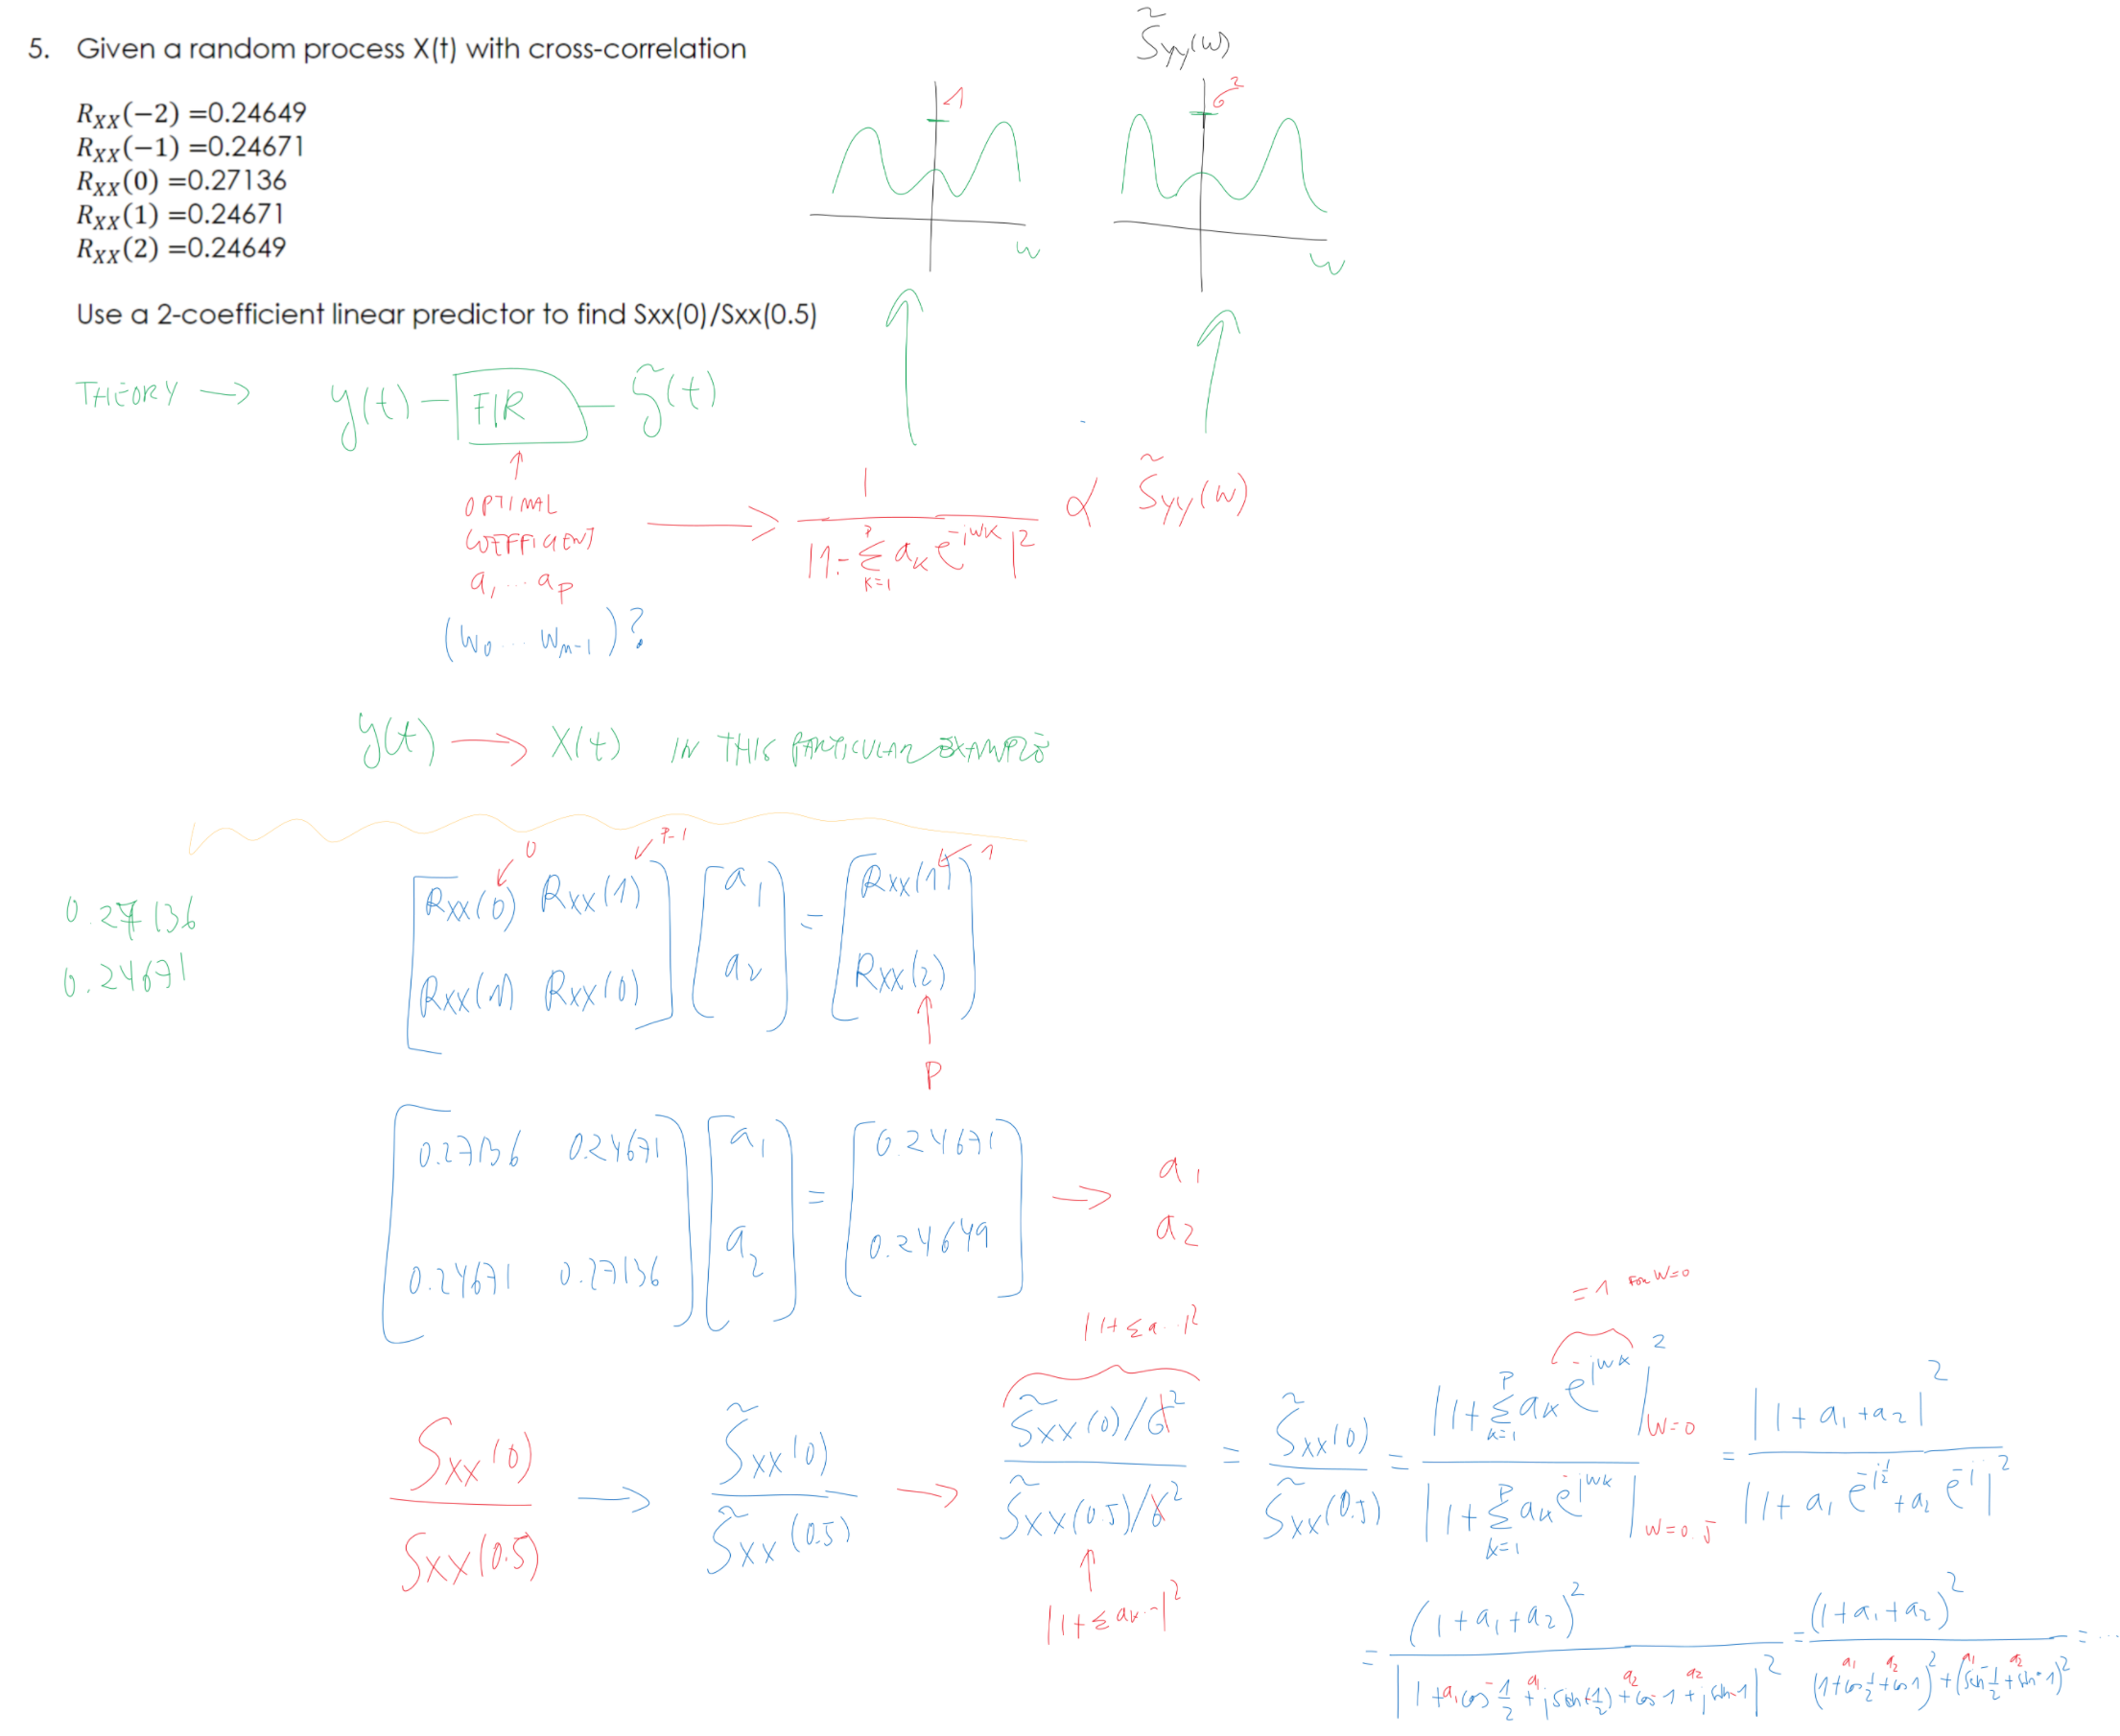 5. Given a random process X(t) with cross-correlation
R_XX(−2) =0.24649
R_XX(−1) =0.24671
R_XX(0) =0.27136
R_XX(1) =0.24671
R_XX(2) =0.24649
Use a 2-coefficient linear predictor to find Sxx(0)/Sxx(0.5)
1
W
S̃yy(w)
σ²
W
THEORY → y(t) — FIR — ỹ(t)
OPTIMAL
COEFFICIENT
a₁ ... a_p
(W₀ ... W_{m-1})?
→ 1 / |1 - Σ_{k=1}^{P} a_k e^{-jwk}|² ∝ S̃yy(w)
y(t) → X(t) IN THIS PARTICULAR EXAMPLE
0 P-1 1
0.27136
0.24671
[Rxx(0) Rxx(1)] [a₁] = [Rxx(1)]
[Rxx(1) Rxx(0)] [a₂] = [Rxx(2)]
P
[0.27136 0.24671] [a₁] = [0.24671] → a₁
[0.24671 0.27136] [a₂] = [0.24649] a₂
|1+Σa...|²
= 1 FOR W=0
Sxx(0) / Sxx(0.5) → S̃xx(0) / S̃xx(0.5) → (S̃xx(0)/σ²) / (S̃xx(0.5)/σ²) = S̃xx(0) / S̃xx(0.5) = |1+Σ_{k=1}^{P} a_k e^{-jwk}|²_{W=0} / |1+Σ_{k=1}^{P} a_k e^{-jwk}|_{W=0.5} = |1+a₁+a₂|² / |1+a₁e^{-j½}+a₂e^{-j}|²
|1+Σa_k...|²
= (1+a₁+a₂)² / |1+a₁cos-½+a₁jsin(-½)+a₂cos-1+a₂jsin-1|² = (1+a₁+a₂)² / (1+a₁cos½+a₂cos1)²+(a₁sin-½+a₂sin-1)² = ...